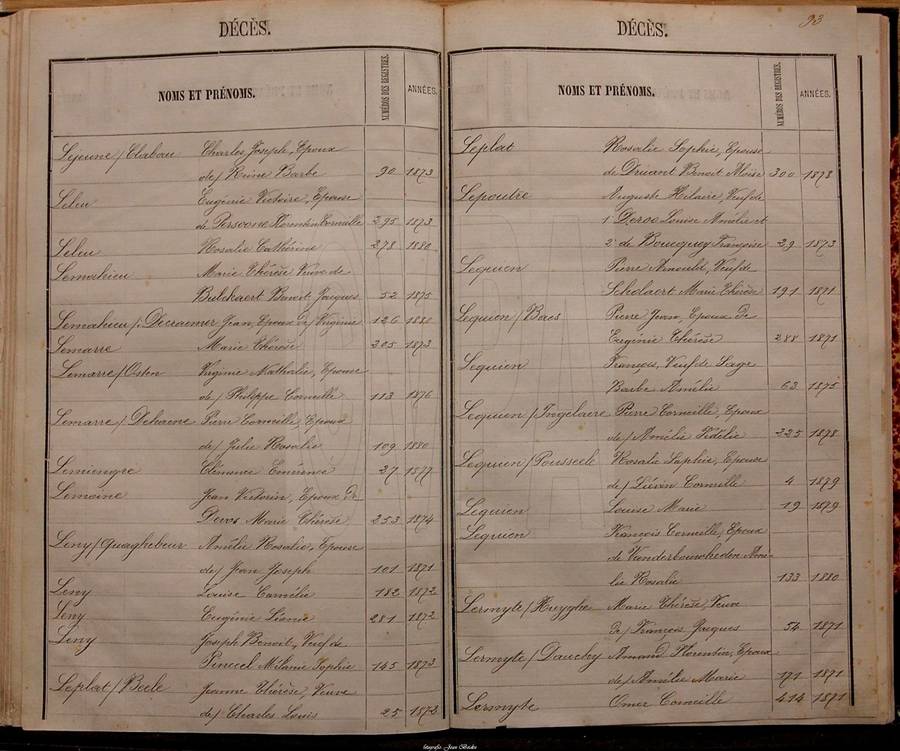 DÉCÈS.
NOMS ET PRÉNOMS. NUMÉROS DES REGISTRES. ANNÉES.
Lejeune / Clabau Charles Joseph, Epoux
de / Reine Barbe 90 1873
Leleu Eugénie Victoire, Epouse
de Corneille 295 1873
Leleu Rosalie Cathérine 278 1880
Lemahieu Marie Thérèse Veuve de
Bulckaert Benoit Jacques 52 1875
Lemahieu / Decraemer Jean, Epoux de / Virginie 126 1880
Lemarre Marie Thérèse 205 1873
Lemarre / Osten Virginie Nathalie, Epouse
de / Philippe Corneille 113 1876
Lemarre / Dehaene Pierre Corneille, Epoux
de / Julie Rosalie 109 1880
Lemiengre Clémence 27 1877
Lemoine Jean Victorin, Epoux de
Devos Marie Thérèse 253 1874
Leny / Quaghebeur Amélie Rosalie, Epouse
de / Jean Joseph 101 1871
Leny Louise Camélie 182 1872
Leny Eugénie Léonie 281 1872
Leny Joseph Benoit, Veuf de
Mélanie Sophie 145 1873
Leplat / Beele Jeanne Thérèse, Veuve
de / Charles Louis 25 1872
DÉCÈS. 93
NOMS ET PRÉNOMS. NUMÉROS DES REGISTRES. ANNÉES.
Leplat Rosalie Sophie, Epouse
de Driant Benoit Moïse 300 1878
Lepoutre Auguste Hilaire, Veuf de
1° Deroo Louise Amélie et
2° de Boucquey Françoise 29 1873
Lequen Pierre Arnould, Veuf de
Scholaert Marie Thérèse 191 1871
Lequien / Baes Pierre Jean, Epoux de
Eugénie Thérèse 288 1871
Lequien François, Veuf de Sage
Barbe Amélie 63 1875
Lequien / Ingelaere Pierre Corneille, Epoux
de / Amélie Fidélie 225 1878
Lequien / Pousseele Rosalie Sophie, Epouse
de / Liévin Corneille 4 1879
Lequien Louise Marie 19 1879
Lequien François Corneille, Epoux
de Vanderbouwheden Amé-
lie Rosalie 133 1880
Lermyte / Huyghe Marie Thérèse, Veuve
de / François Jacques 54 1871
Lermyte / Dauchy Amand Florentin, Epoux
de / Amélie Marie 171 1871
Lermyte Omer Corneille 414 1871